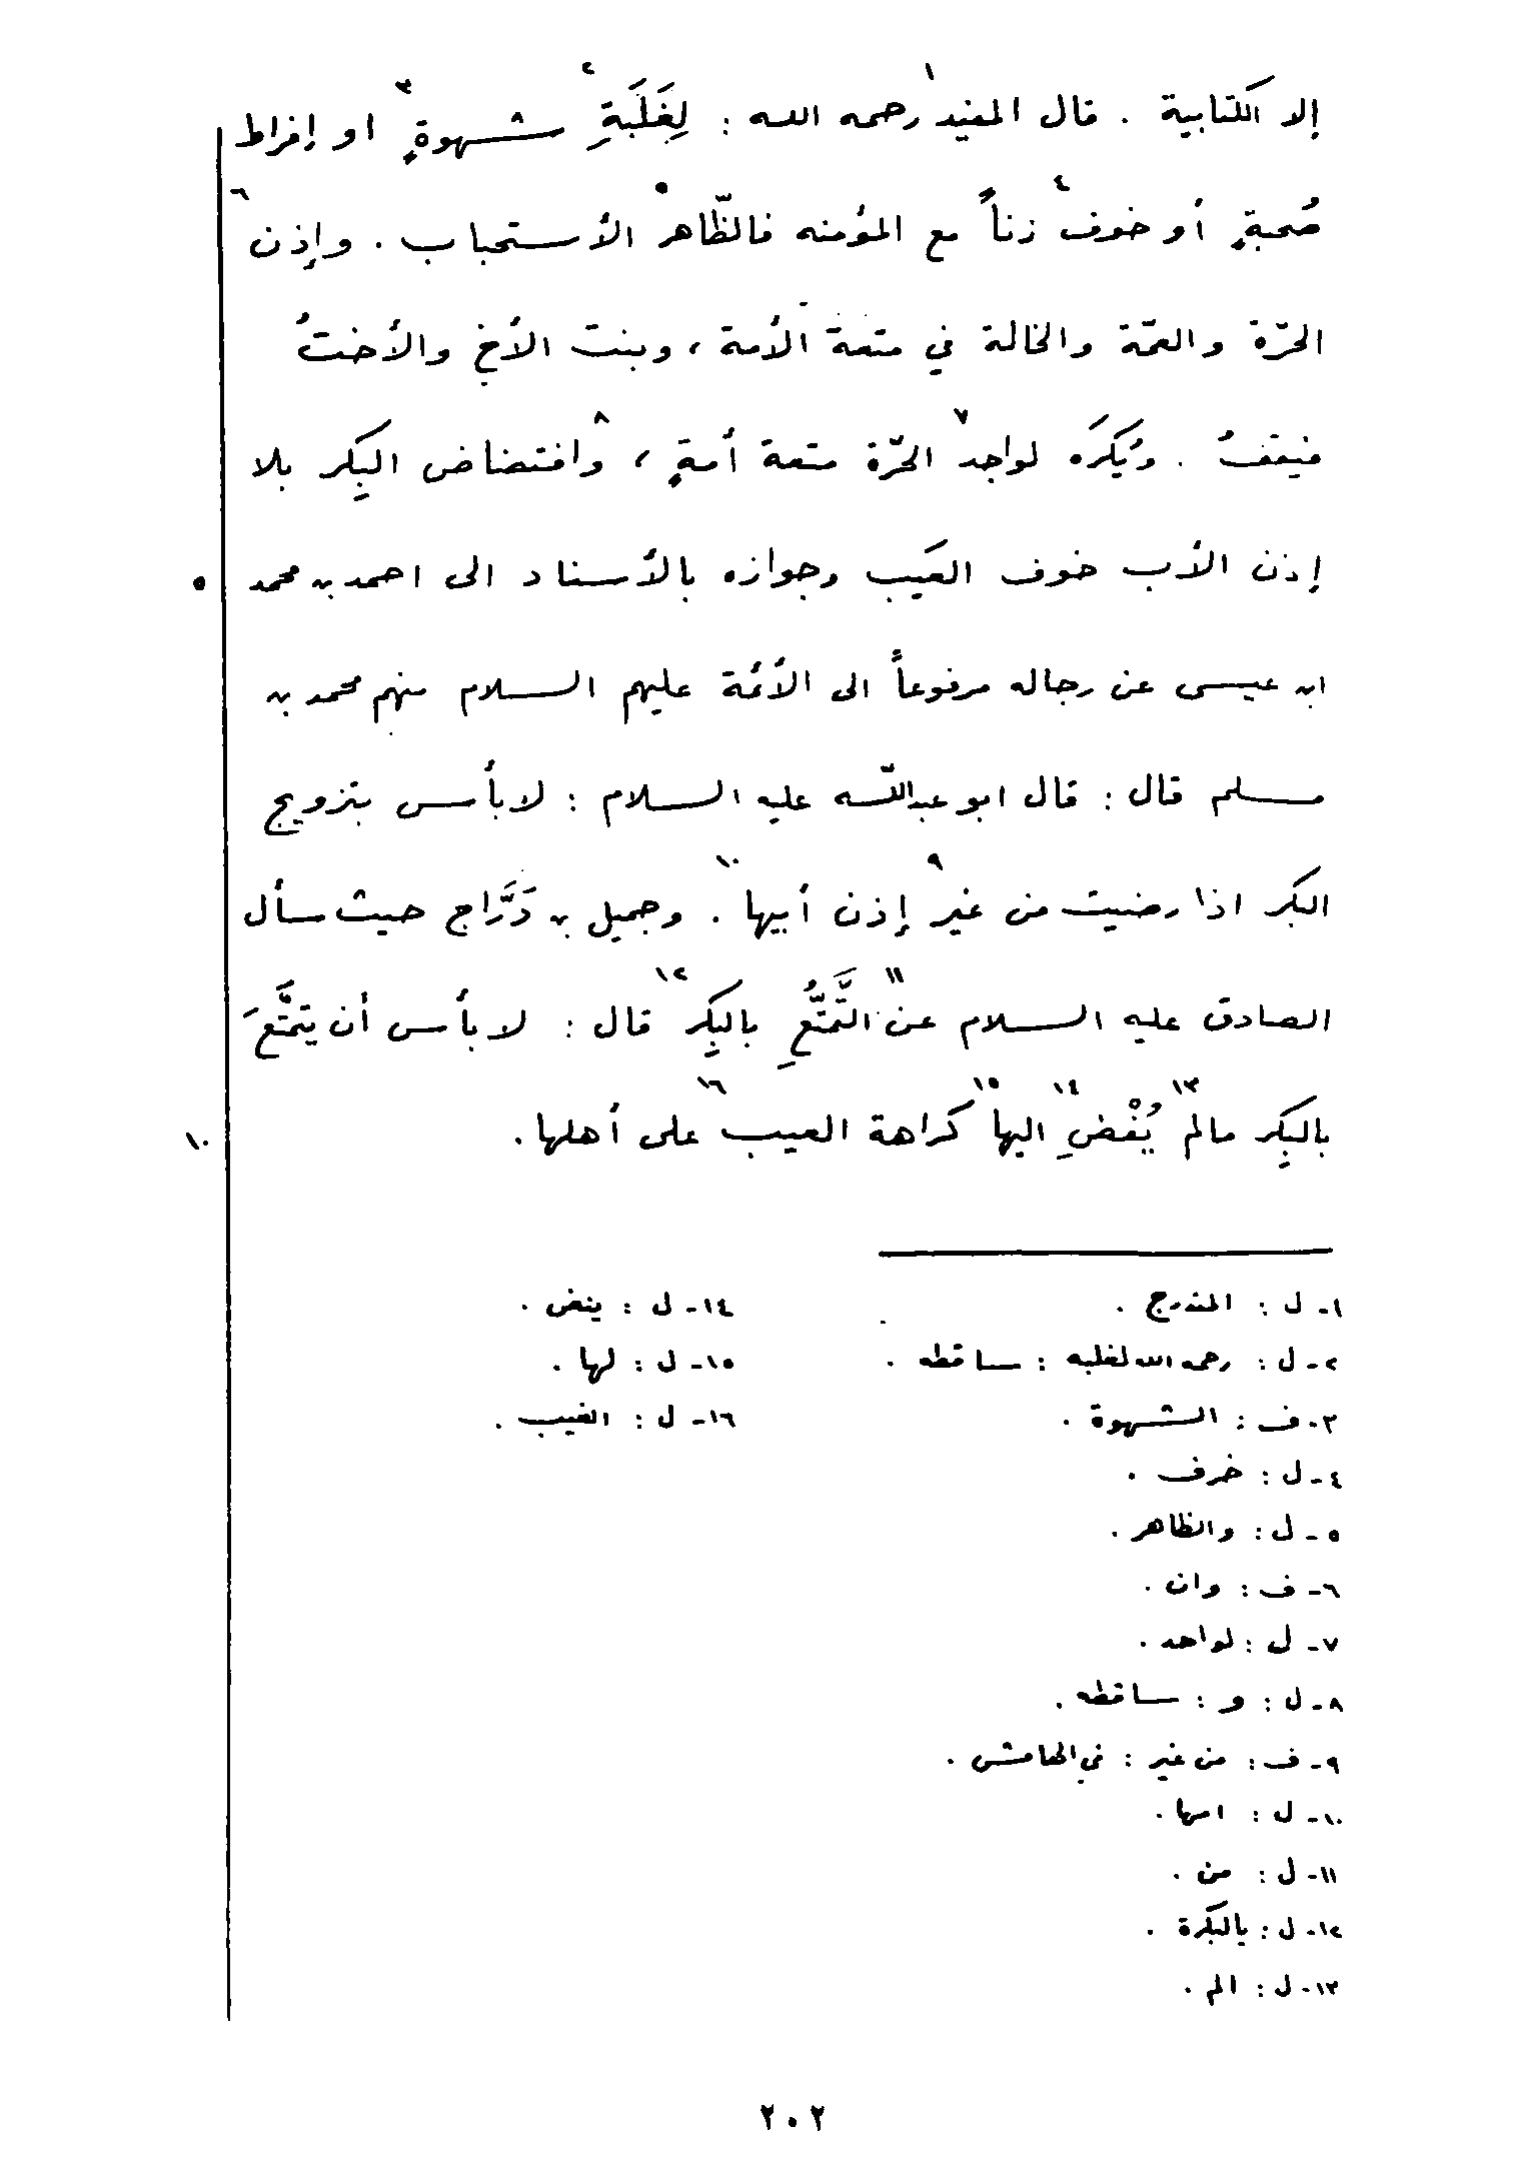 إلا الكتابية . قال المفيد١ رحمه الله : لِغَلَبَةِ٢ شهوةٍ٣ او إفراط
صُحبةٍ أو خوف٤ زناً مع المؤمنه فالظّاهر٥ الأستحباب . وإذن٦
الحرّة والعمّة والخالة في متعة الأمة ، وبنت الأخ والأختُ
فيقفُ . ويُكرَه لواجد٧ الحرّة متعة أمةٍ ، وافتضاض٨ البِكر بلا
إذن الأب خوف العَيب وجوازه بالأسناد الى احمد بن محمد ٥
ابن عيسى عن رجاله مرفوعاً الى الأئمة عليهم السلام منهم محمد بن
مسلم قال : قال ابو عبداللّه عليه السلام : لا بأس بتزويج
البكر اذا رضيت من غير٩ إذن أبيها١٠ . وجميل بن دَرَّاج حيث سأل
الصادق عليه السلام عن١١ التَّمَتُّعِ بالبِكر١٢ قال : لا بأس أن يتمتَّعَ
بالبِكر مالم١٣ يُفْضِ١٤ اليها١٥ كراهة العيب١٦ على أهلها . ١٠
١- ل : المندرج .
٢- ل : رحمه الله لغلبه : ساقطه .
٣- ف : الشهوة .
٤- ل : خرف .
٥- ل : والظاهر .
٦- ف : وان .
٧- ل : لواحد .
٨- ل : و : ساقطه .
٩- ف : من غير : في الهامش .
١٠- ل : اسها .
١١- ل : من .
١٢- ل : بالبكرة .
١٣- ل : الم .
١٤- ل : ينض .
١٥- ل : لها .
١٦- ل : الغيب .
٢٠٢